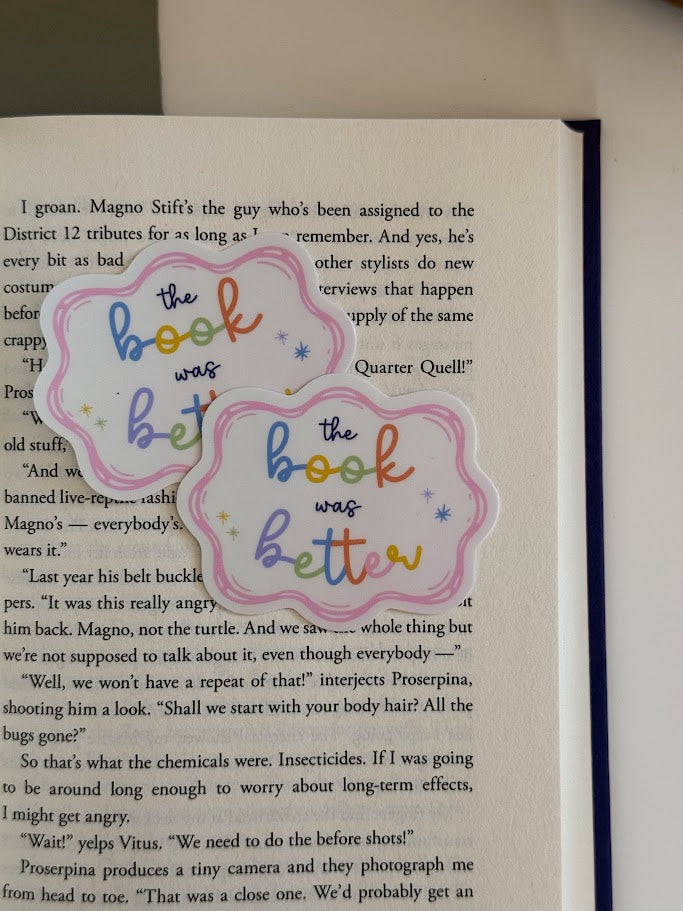 I groan. Magno Stift’s the guy who’s been assigned to the
District 12 tributes for as long as I remember. And yes, he’s
every bit as bad other stylists do new
costum terviews that happen
befor upply of the same
crappy
“H Quarter Quell!”
Pros
“W
old stuff,
“And we
banned live-reptile fashi
Magno’s — everybody’s.
wears it.”
“Last year his belt buckle
pers. “It was this really angry it
him back. Magno, not the turtle. And we saw the whole thing but
we’re not supposed to talk about it, even though everybody —”
“Well, we won’t have a repeat of that!” interjects Proserpina,
shooting him a look. “Shall we start with your body hair? All the
bugs gone?”
So that’s what the chemicals were. Insecticides. If I was going
to be around long enough to worry about long-term effects,
I might get angry.
“Wait!” yelps Vitus. “We need to do the before shots!”
Proserpina produces a tiny camera and they photograph me
from head to toe. “That was a close one. We’d probably get an
the
book
was
bett
the
book
was
better